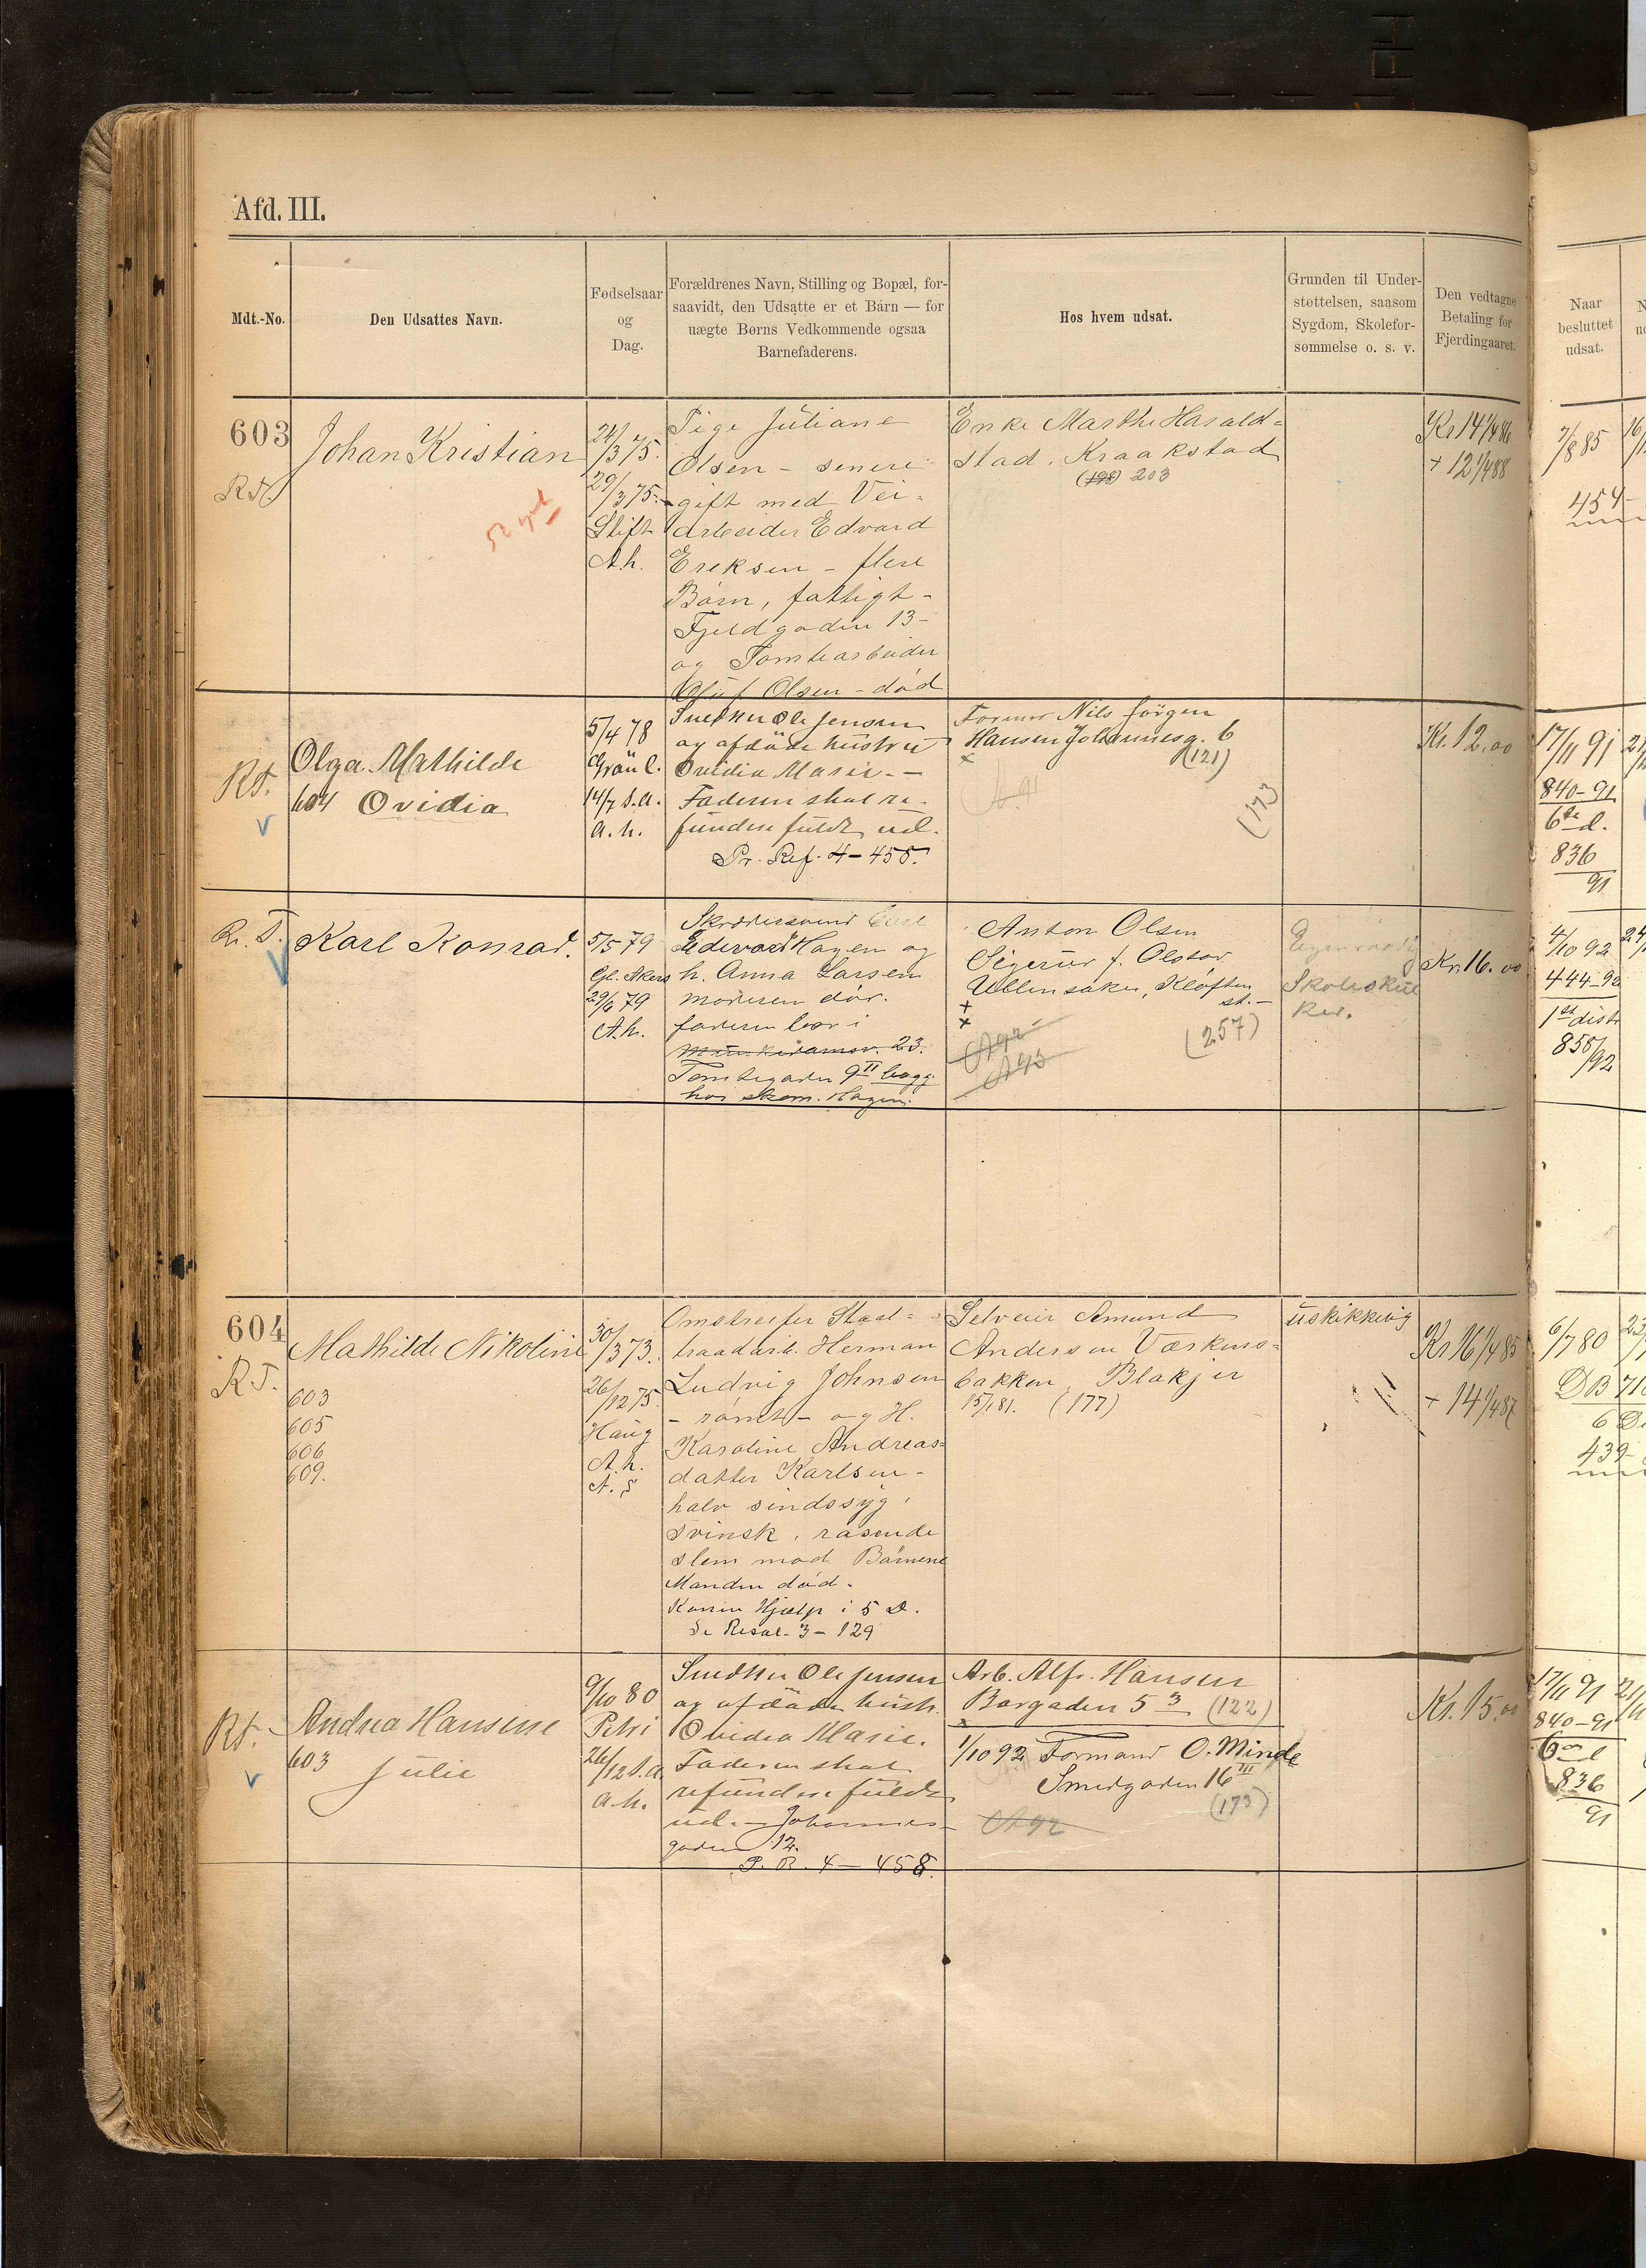 Afd. III.
Mdt.-No.
Den Udsattes Navn.
Fødselsaar
og
Dag.
Forældrenes Navn, Stilling og Bopæl, for-
saavidt, den Udsatte er et Barn — for
uægte Børns Vedkommende ogsaa
Barnefaderens.
Hos hvem udsat.
Grunden til Under-
støttelsen, saasom
Sygdom, Skolefor-
sømmelse o. s. v.
Den vedtagne
Betaling for
Fjerdingaaret.
Naar
besluttet
udsat.
603
Johan Kristian
24/3 75.
29/3 75.
Slift
A.h.
Pige Juliane
Olsen - senere
gift med Vei-
arbeider Edvard
Ereksen - flere
Børn, fattigt -
Fjeldgaden 13 -
og Tomtearbeider
Oluf Olsen - död
Enke Marthe Harald-
stad. Kraakstad
(198) 203
Kr 14 1/4 86
+ 12 1/4 88
7/8 85
454-
Rt.
Olga Mathilde
604 Ovidia
5/4 78
Grönl.
14/7 s.a.
a.h.
Snedker Ole Jensen
og afdöde hustru
Ovidia Marie. -
Faderen skal re-
fundere fuldt ud.
Pr. Ref. 4 - 458.
Former Nils Jörgen
Hansen Johannesg. 6
(121)
(173
Kr. 12.00
17/11 91
840-91
6te d.
836
91
Kr. T.
Karl Konrad.
5/5 79
Gl. Akers
29/6 79
A.h.
Skrædersvend Carl
Edevard Hagen og
h. Anna Larsen
moderen död.
faderen bor i
Munkedamsv. 23.
Tomtegaden 9 II bagg.
hos skom. Hagen.
Anton Olsen
Sigerud f. Olstad
Ullensaker, Klöften
st. -
(257)
A 92
A 93
Skolesku
ker.
Kr. 16.00
4/10 92
444-92
1st distr
855/92
604
R.T.
Mathilde Nikoline
603
605
606
609.
30/3 73.
26/12 75.
Haug
A.h.
N. S
Omstreifer Staal-
traadarb. Herman
Ludvig Johnsen
- römt - og H.
Karoline Andreas-
datter Karlsen -
halv sindssyg,
svinsk, rasende
slem mod Börnene
Manden död.
Konen Hjælp i 5 D.
Se Resol. 3 - 129
Selveier Amund
Andersen Værkens-
bakken, Blakjer
15/1 81. (177)
uskikkelig
Kr 16 1/4 85
+ 14 1/4 87
6/7 80
DB 710
439-
Rt.
Andrea Hansine
603 Julie
9/10 80
Petri
26/12 s.a.
a.h.
Snedker Ole Jensen
og afdöde hustr.
Ovidia Marie.
Faderen skal
refundere fuldt
ud. - Johannes-
gaden 12.
P. R. 4 - 458.
Arb. Alf. Hansen
Borgaden 5 3 (122)
1/10 92 Formand O. Minde
Smedgaden 16 III
(173)
A 92
Kr. 15.00
17/11 91
840-91
836
91